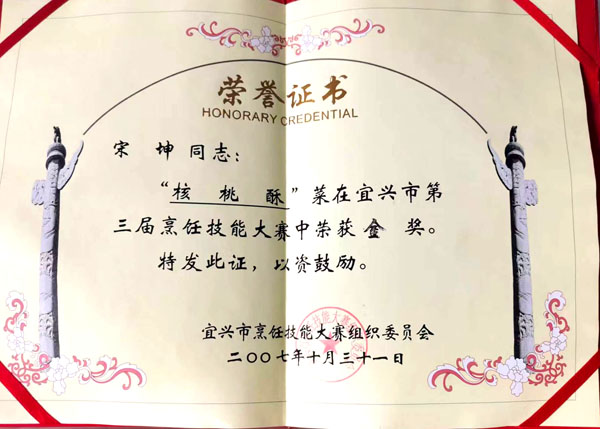 荣誉证书
HONORARY CREDENTIAL
宋 坤同志：
“核桃酥”菜在宜兴市第
三届烹饪技能大赛中荣获金奖。
特发此证，以资鼓励。
宜兴市烹饪技能大赛组织委员会
二〇〇七年十月三十一日